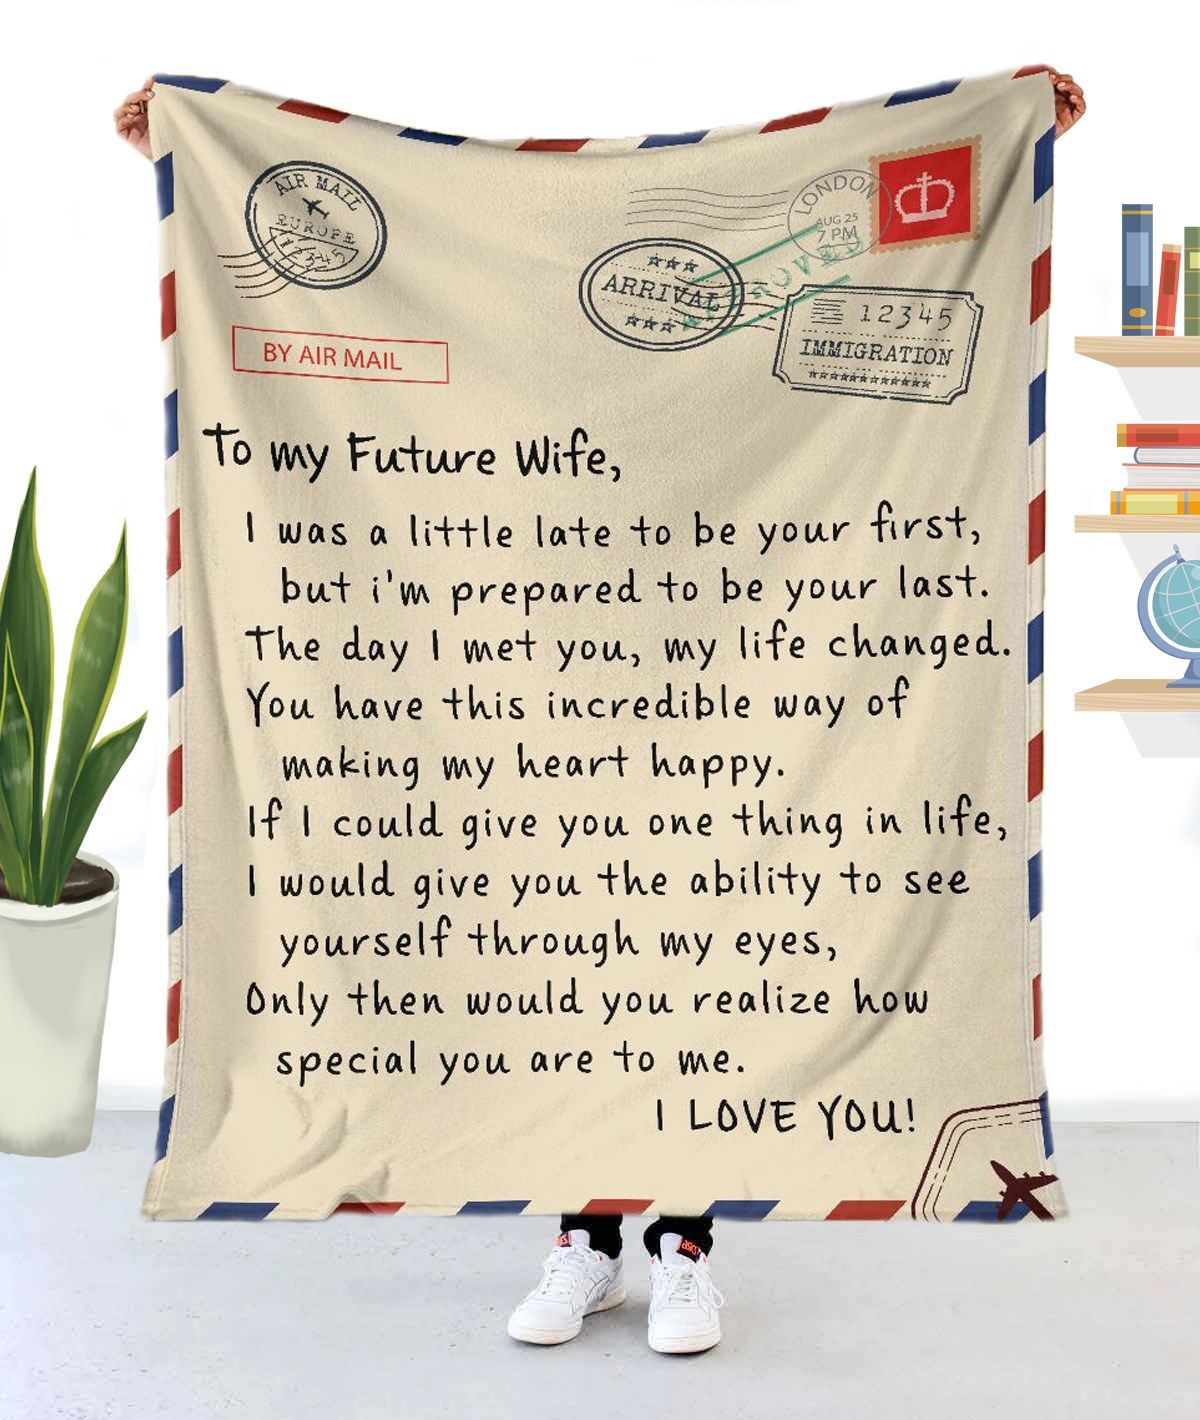 AIR MAIL
EUROPE
12345
LONDON
AUG 25
7 PM
ARRIVAL
12345
IMMIGRATION
BY AIR MAIL
To my Future Wife,
I was a little late to be your first,
but i'm prepared to be your last.
The day I met you, my life changed.
You have this incredible way of
making my heart happy.
If I could give you one thing in life,
I would give you the ability to see
yourself through my eyes,
Only then would you realize how
special you are to me.
I LOVE YOU!
asics